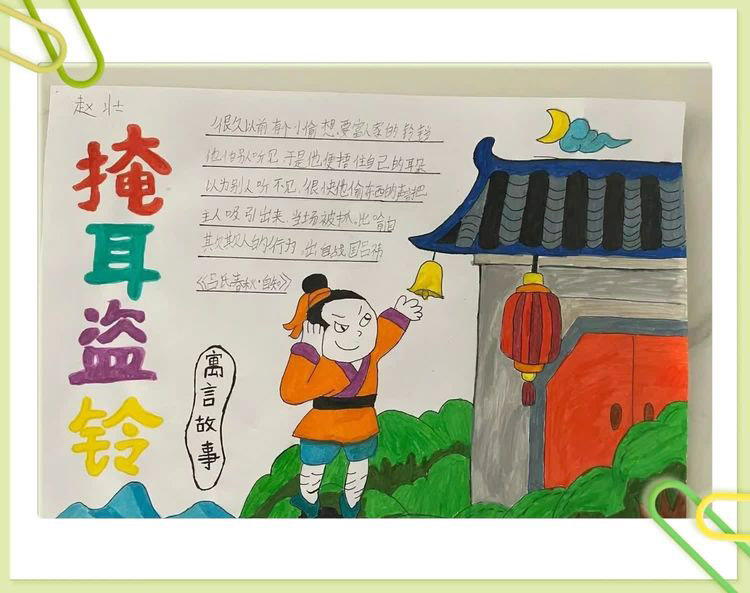 赵壮
掩耳盗铃
很久以前有个小偷想要富人家的铃铛
他怕别人听见于是他便捂住自己的耳朵
以为别人听不见,很快他偷东西的声把
主人吸引出来,当场被抓,比喻自
其欺人的行为,出自战国吕
《吕氏春秋·自知》
寓言故事